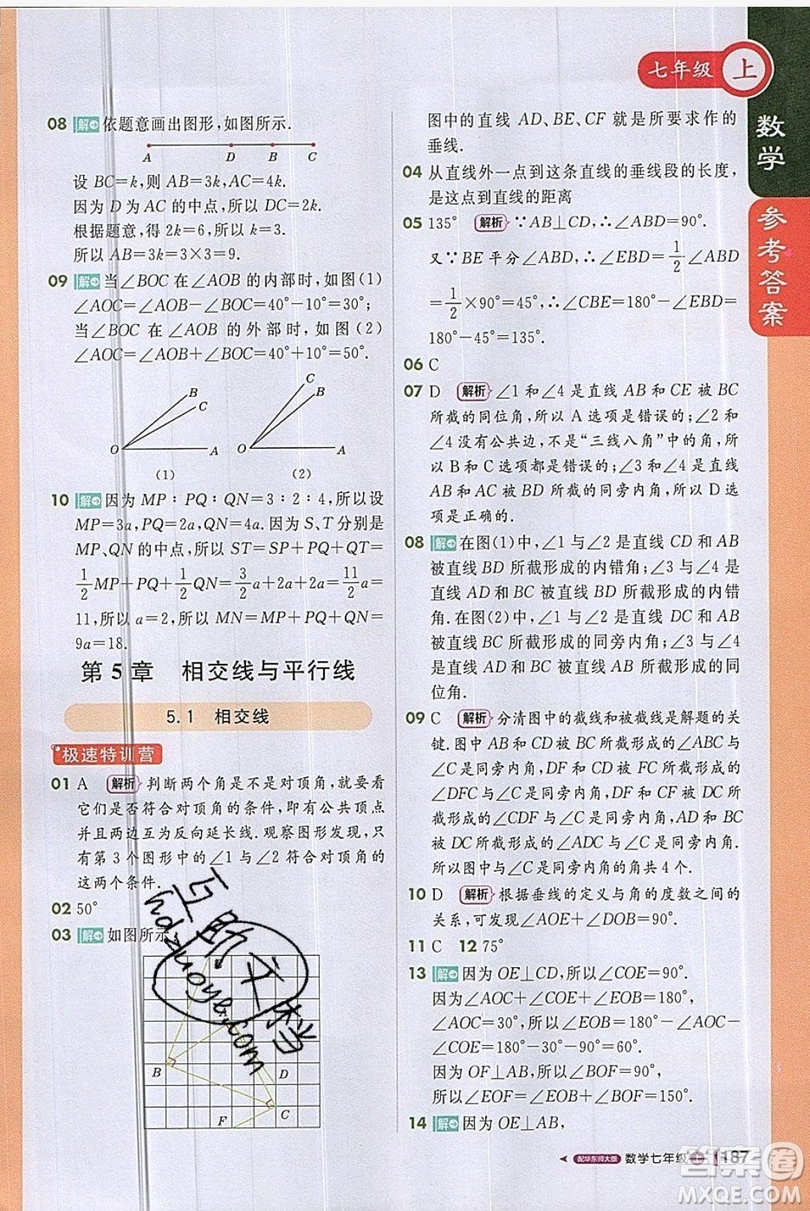 七年级 上
数学
参考答案
08 解 依题意画出图形,如图所示.
A D B C
设 BC=k,则 AB=3k,AC=4k.
因为 D 为 AC 的中点,所以 DC=2k.
根据题意,得 2k=6,所以 k=3.
所以 AB=3×3=9.
09 解 当∠BOC 在∠AOB 的内部时,如图(1)
∠AOC=∠AOB−∠BOC=40°−10°=30°;
当∠BOC 在∠AOB 的外部时,如图(2)
∠AOC=∠AOB+∠BOC=40°+10°=50°.
B C O A
(1)
C B O A
(2)
10 解 因为 MP∶PQ∶QN=3∶2∶4,所以设
MP=3a,PQ=2a,QN=4a.因为 S、T 分别是
MP、QN 的中点,所以 ST=SP+PQ+QT=
1/2 MP+PQ+1/2 QN=3/2 a+2a+2a=11/2 a=
11,所以 a=2.所以 MN=MP+PQ+QN=
9a=18.
第 5 章 相交线与平行线
5.1 相交线
极速特训营
01 A 解析 判断两个角是不是对顶角,就要看
它们是否符合对顶角的条件,即有公共顶点
并且两边互为反向延长线.观察图形发现,只
有第 3 个图形中的∠1 与∠2 符合对顶角的
这两个条件.
02 50°
03 解 如图所示,
B D C F
互助文档
hdzuoye.com
图中的直线 AD、BE、CF 就是所要求作的
垂线.
04 从直线外一点到这条直线的垂线段的长度,
是这点到直线的距离
05 135° 解析 ∵AB⊥CD,∴∠ABD=90°.
又∵BE 平分∠ABD,∴∠EBD=1/2∠ABD
=1/2×90°=45°,∴∠CBE=180°−∠EBD=
180°−45°=135°.
06 C
07 D 解析 ∠1 和∠4 是直线 AB 和 CE 被 BC
所截的同位角,所以 A 选项是错误的;∠2 与
∠4 没有公共边,不是“三线八角”中的角,所
以 B 和 C 选项都是错误的;∠3 与∠4 是直线
AB 和 AC 被 BC 所截的同旁内角,所以 D 选
项是正确的.
08 解 在图(1)中,∠1 与∠2 是直线 CD 和 AB
被直线 BD 所截形成的内错角;∠3 与∠4 是
直线 AD 和 BC 被直线 BD 所截形成的内错
角.在图(2)中,∠1 与∠2 是直线 DC 和 AB
被直线 BC 所截形成的同旁内角;∠3 与∠4
是直线 AD 和 BC 被直线 AB 所截形成的同
旁内角.
09 C 解析 分清图中的截线和被截线是解题的关
键.图中∠B 与∠C 是同旁内角,∠C 与
∠DFC 与∠C 是同旁内角,∠CDF 与∠C 是同旁内角.
所以图中与∠C 是同旁内角的角共 4 个.
10 D 解析 根据垂线的定义与角的度数之间的
关系,可求得∠AOE+∠DOB=90°.
11 C 12 75°
13 解 因为 OE⊥CD,所以∠COE=90°.
因为∠AOC=30°,所以∠EOB=180°−∠AOC−
∠COE=180°−30°−90°=60°.
因为 OF⊥AB,所以∠BOF=90°,
所以∠EOF=∠EOB+∠BOF=150°.
14 解 因为 OE⊥AB,
配华东师大版 数学七年级 上 187
答案圈
MXQE.COM